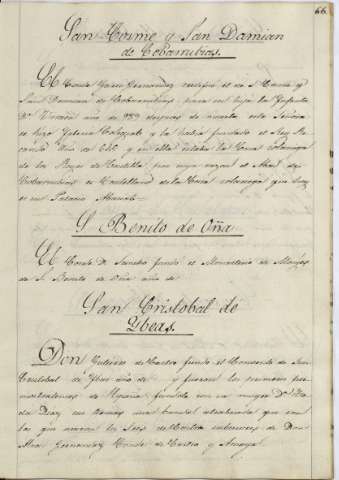 66
San Cosme y San Damian
de Cobarrubias.
El Conde Garci Fernandez reedificó el de S. Cosme y
San Damian de Cobarrubias, para su hija la Infanta
Dª Urraca año de 999 despues de muerta esta Señora
se hizo Yglesia Colegial y la había fundado el Rey
año de y en ella estaba la Casa solariega
de los Reyes de Castilla por cuya razon el Abad de
Cobarrubias es Castellano de la Casa solariega que hoy
es su Palacio Abacial.
S. Benito de Oña
El Conde D. Sancho fundó el Monasterio de Monjes
de S. Benito de Oña año de
San Cristobal de
Ybeas.
Don Gutierre de Castro fundó el Convento de San
Cristobal de Ybeas año de y fueron los primeros
de España fundolo con su muger Dª
Diaz que en
los que vivian los de Castro de Don
Fernandez Conde de Castro y Amaya